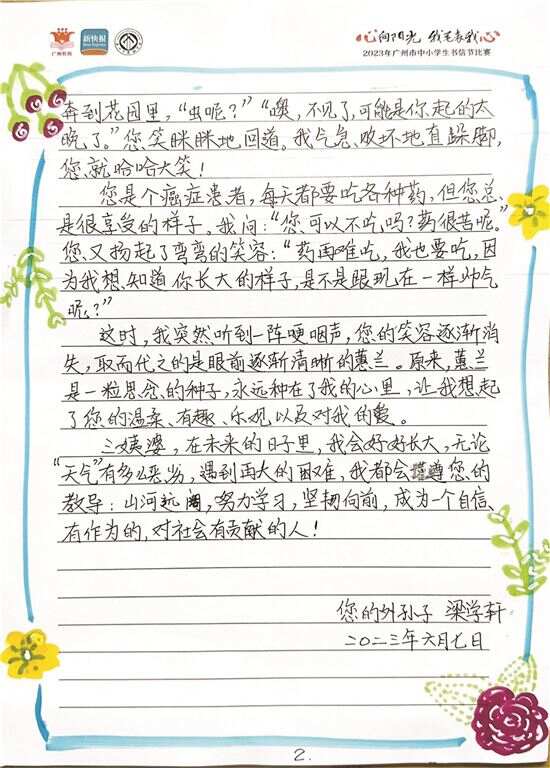 广州教育
新快报
心向阳光 我笔表我心
2023年广州市中小学生书信节比赛
奔到花园里，“虫呢？”“噢，不见了，可能是你起的太
晚了。”您笑眯眯地回道。我气急败坏地直跺脚，
您就哈哈大笑！
您是个癌症患者，每天都要吃各种药，但您总
是很享受的样子。我问：“您可以不吃吗？药很苦呢。”
您又扬起了弯弯的笑容：“药再难吃，我也要吃，因
为我想知道你长大的样子，是不是跟现在一样帅气
呢？”
这时，我突然听到一阵哽咽声，您的笑容逐渐消
失，取而代之的是眼前逐渐清晰的蕙兰。原来，蕙兰
是一粒思念的种子，永远种在了我的心里，让我想起
了您的温柔、有趣、乐观以及对我的爱。
三姨婆，在未来的日子里，我会好好长大，无论
“天气”有多么恶劣，遇到再大的困难，我都会遵您的
教导：山河远阔，努力学习，坚韧向前，成为一个自信、
有作为的，对社会有贡献的人！
您的外孙子 梁学轩
二〇二三年六月七日
2.